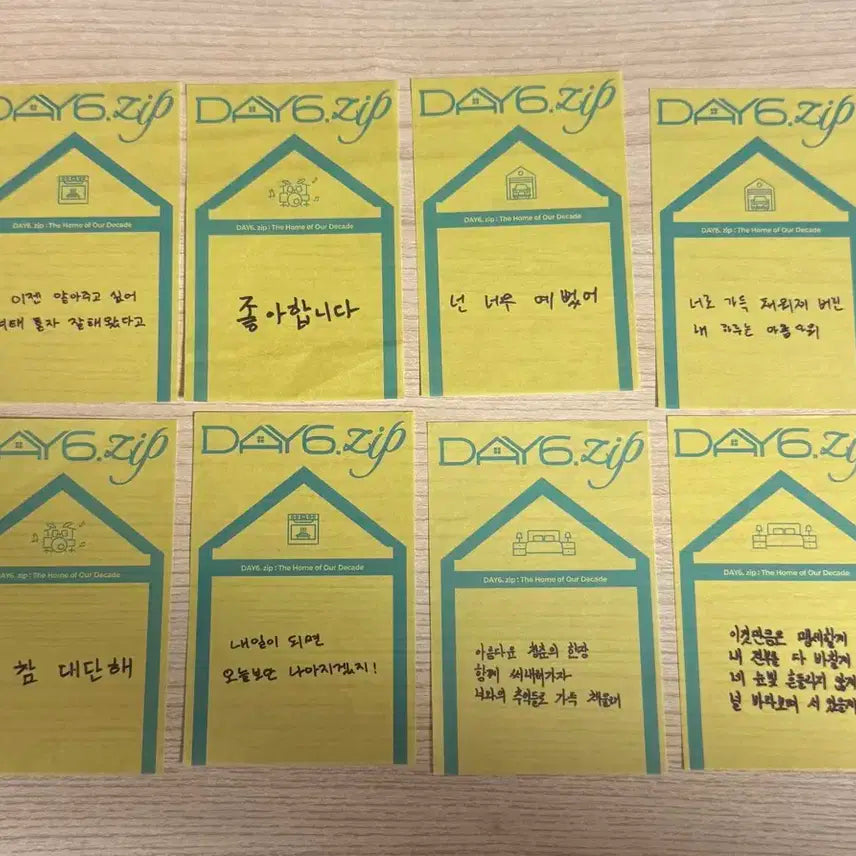 DAY6.zip
DAY6. zip : The Home of Our Decade
이젠 알아주고 싶어
여태 혼자 잘해왔다고
DAY6.zip
DAY6. zip : The Home of Our Decade
좋아합니다
DAY6.zip
DAY6. zip : The Home of Our Decade
넌 너무 예뻤어
DAY6.zip
DAY6. zip : The Home of Our Decade
너로 가득 채워져 버린
내 하루는 아름다워
DAY6.zip
DAY6. zip : The Home of Our Decade
참 대단해
DAY6.zip
DAY6. zip : The Home of Our Decade
내일이 되면
오늘보단 나아지겠지!
DAY6.zip
DAY6. zip : The Home of Our Decade
아름다운 청춘의 한장
함께 써내려가자
너와의 추억들로 가득 채울래
DAY6.zi
DAY6. zip : The Home of Our Decade
이것만큼은 맹세할게
내 전부를 다 바칠게
네 눈빛 흔들리지 않게
널 바라보며 서 있을게